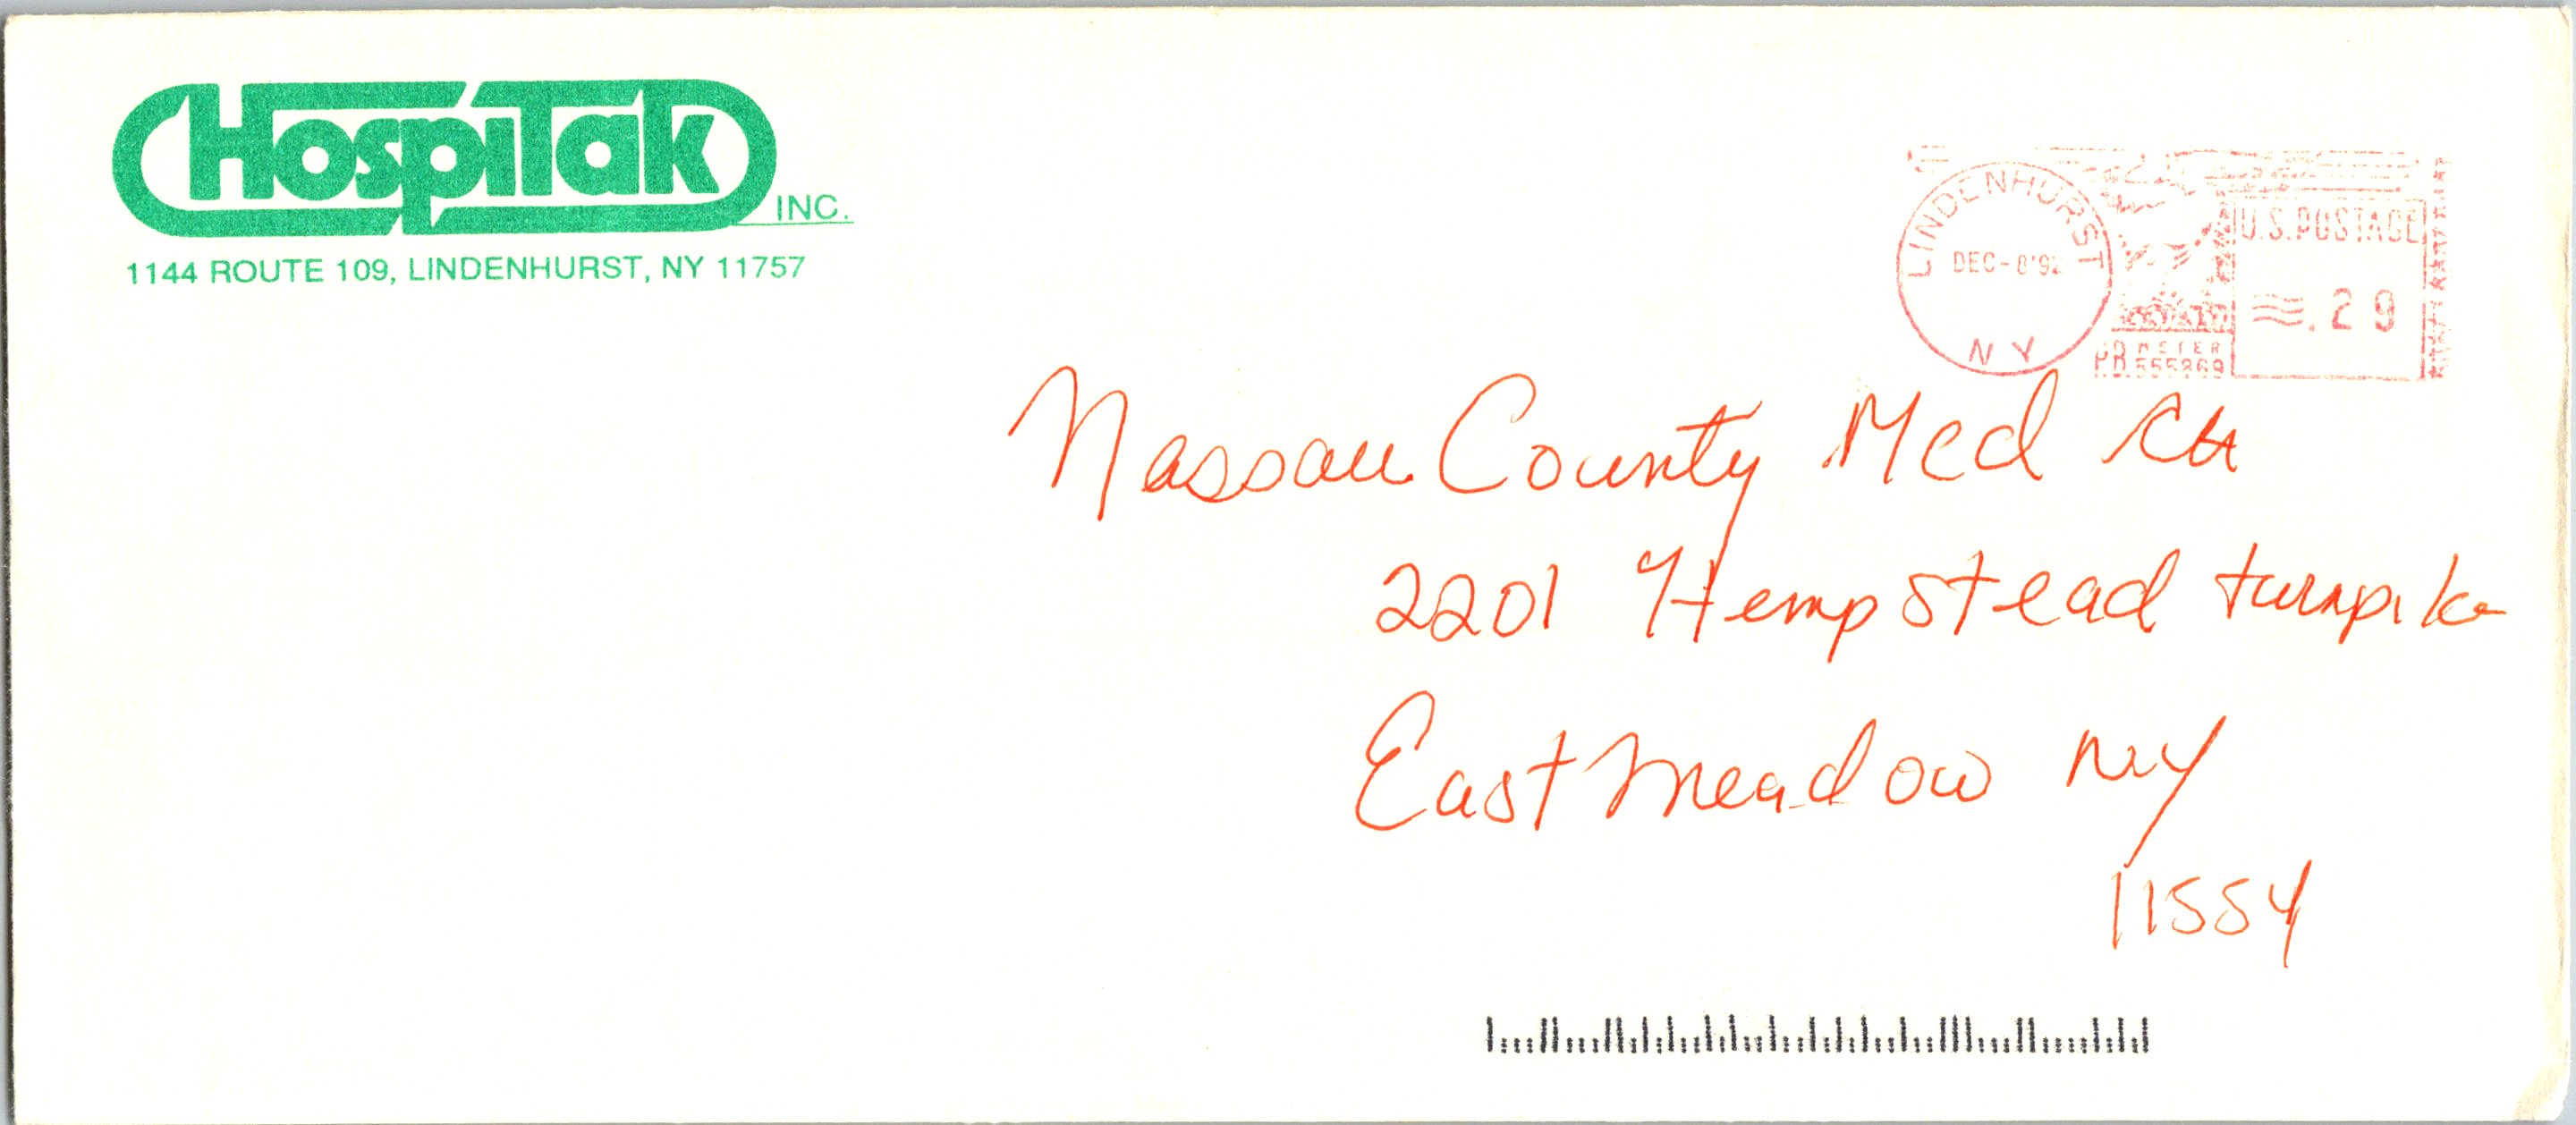 HospiTak INC.
1144 ROUTE 109, LINDENHURST, NY 11757
LINDENHURST
DEC-8'92
NY
U.S. POSTAGE
.29
P.B. METER
Nassau County Med Ctr
2201 Hempstead turnpike
East Meadow NY
11554